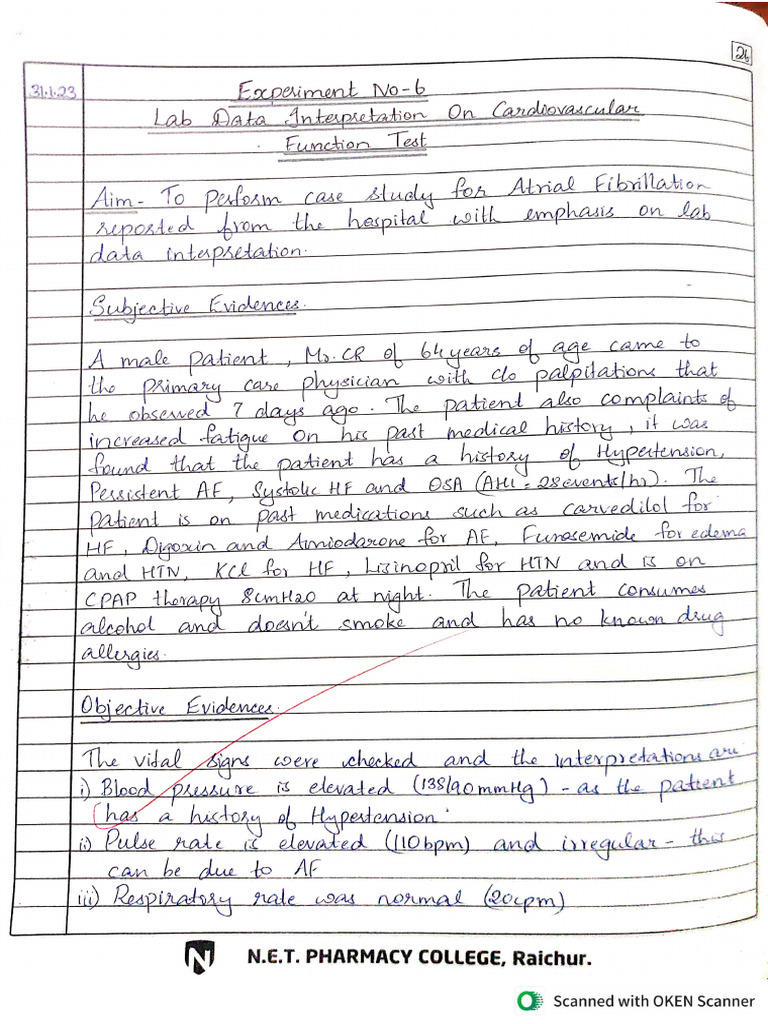 26
31.1.23
Experiment No-6
Lab Data Interpretation On Cardiovascular
Function Test
Aim- To perform case study for Atrial Fibrillation
reported from the hospital with emphasis on lab
data interpretation.
Subjective Evidences.
A male patient, Mr.CR of 64 years of age came to
the primary care physician with c/o palpitations that
he observed 7 days ago. The patient also complaints of
increased fatigue on his past medical history, it was
found that the patient has a history of Hypertension,
Persistent AF, Systolic HF and OSA (AHI = 28 events/hr). The
patient is on past medications such as carvedilol for
HF, Digoxin and Amiodarone for AF, Furosemide for edema
and HTN, KCl for HF, Lisinopril for HTN and is on
CPAP therapy 8cmH2O at night. The patient consumes
alcohol and doesn't smoke and has no known drug
allergies.
Objective Evidences.
The vital signs were checked and the interpretations are
i) Blood pressure is elevated (138/90 mmHg) - as the patient
has a history of Hypertension.
ii) Pulse rate is elevated (110bpm) and irregular - this
can be due to AF
iii) Respiratory rate was normal (20cpm)
N.E.T. PHARMACY COLLEGE, Raichur.
Scanned with OKEN Scanner